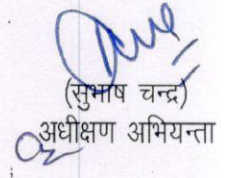 (सुभाष चन्द्र)
अधीक्षण अभियन्ता